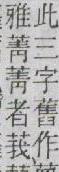 此三字舊作
雅菁菁者莪